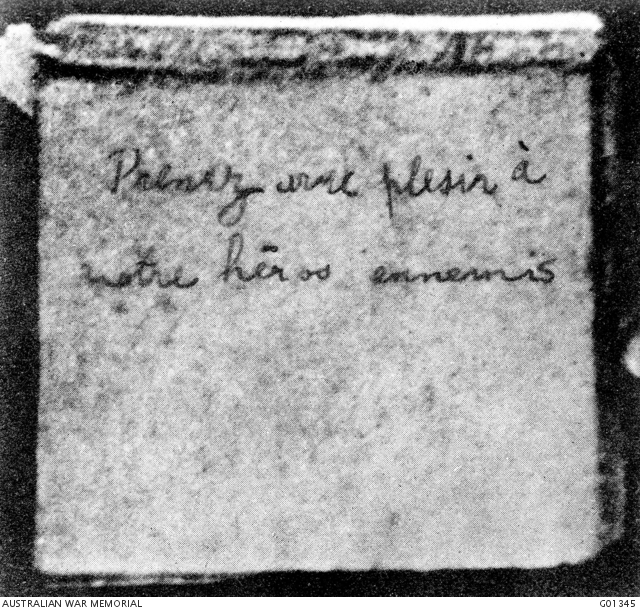 Prenez avec plesir à
notre hēros ennemis
AUSTRALIAN WAR MEMORIAL
G01345